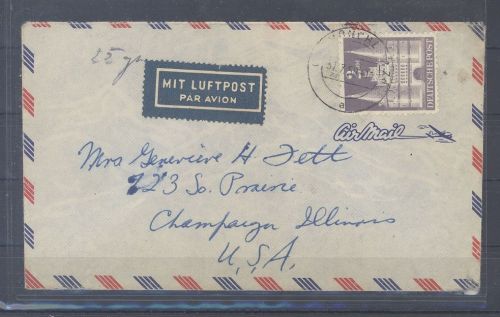 25 gr
MIT LUFTPOST
PAR AVION
DEUTSCHE POST
Air Mail
Mrs Genevieve H Fett
723 So. Prairie
Champaign Illinois
U.S.A.